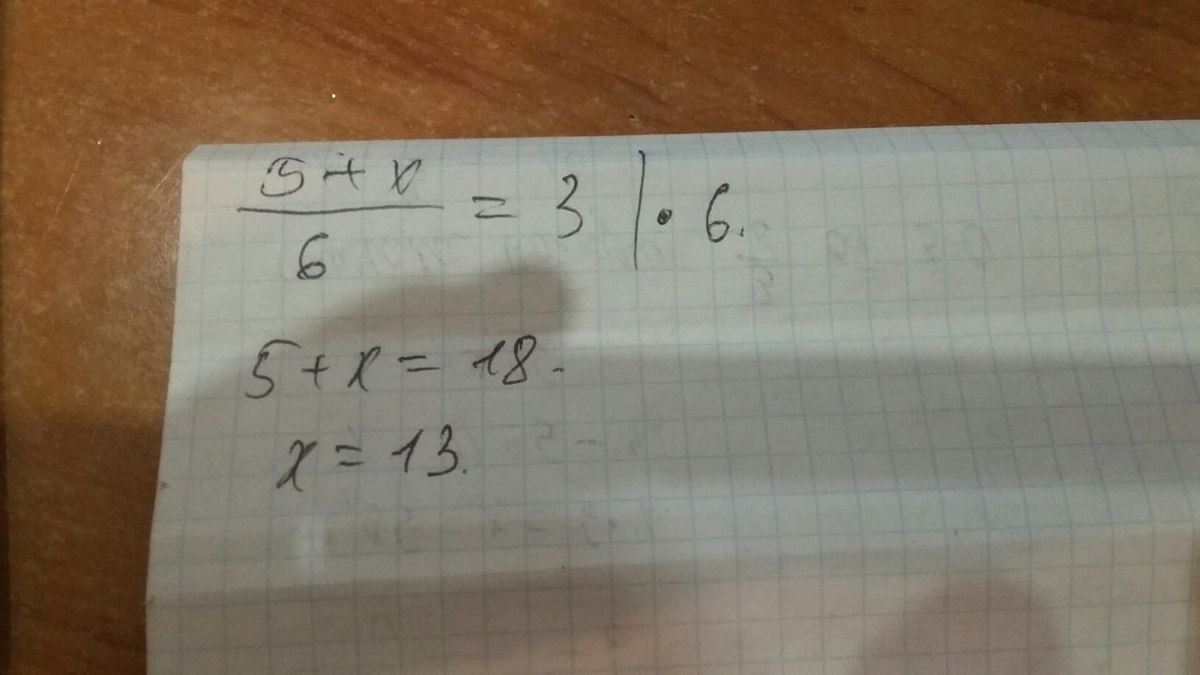 5+x/6 = 3 | · 6.
5 + x = 18.
x = 13.